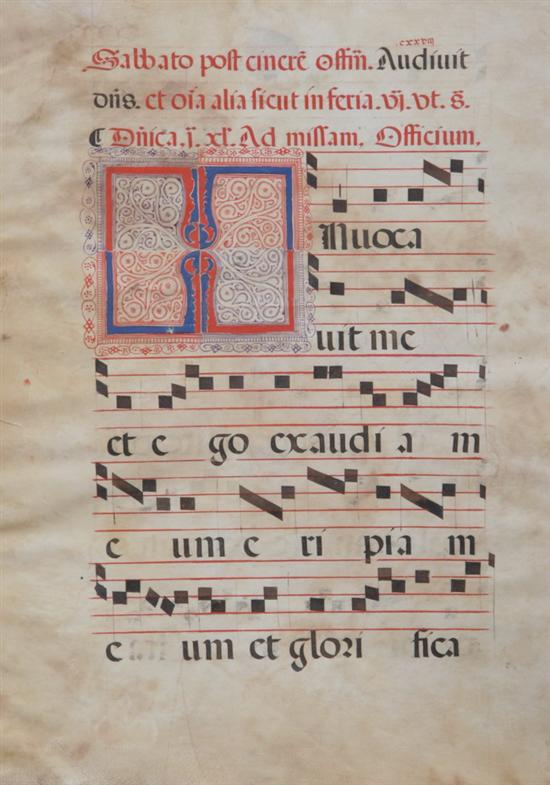 cxxviij
Sabbato post cinerẽ offm̃. Audiuit
dñs. et oĩa alia sicut in feria. vj. vt. s̃.
Dñica. j. xl. Ad missam. Officium.
INuoca
uit me
et e go exaudi a m
e um e ri pia m
e um et glori fica